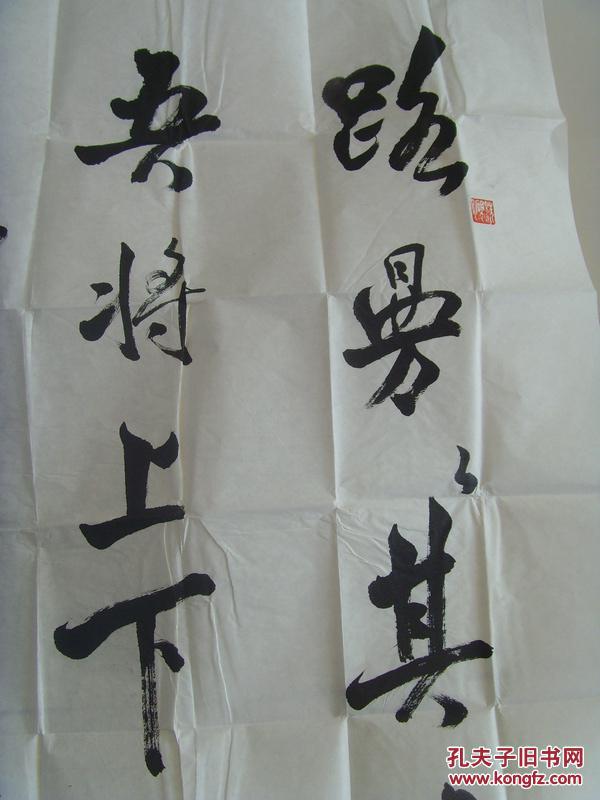 路曼々其
吾将上下
孔夫子旧书网
www.kongfz.com